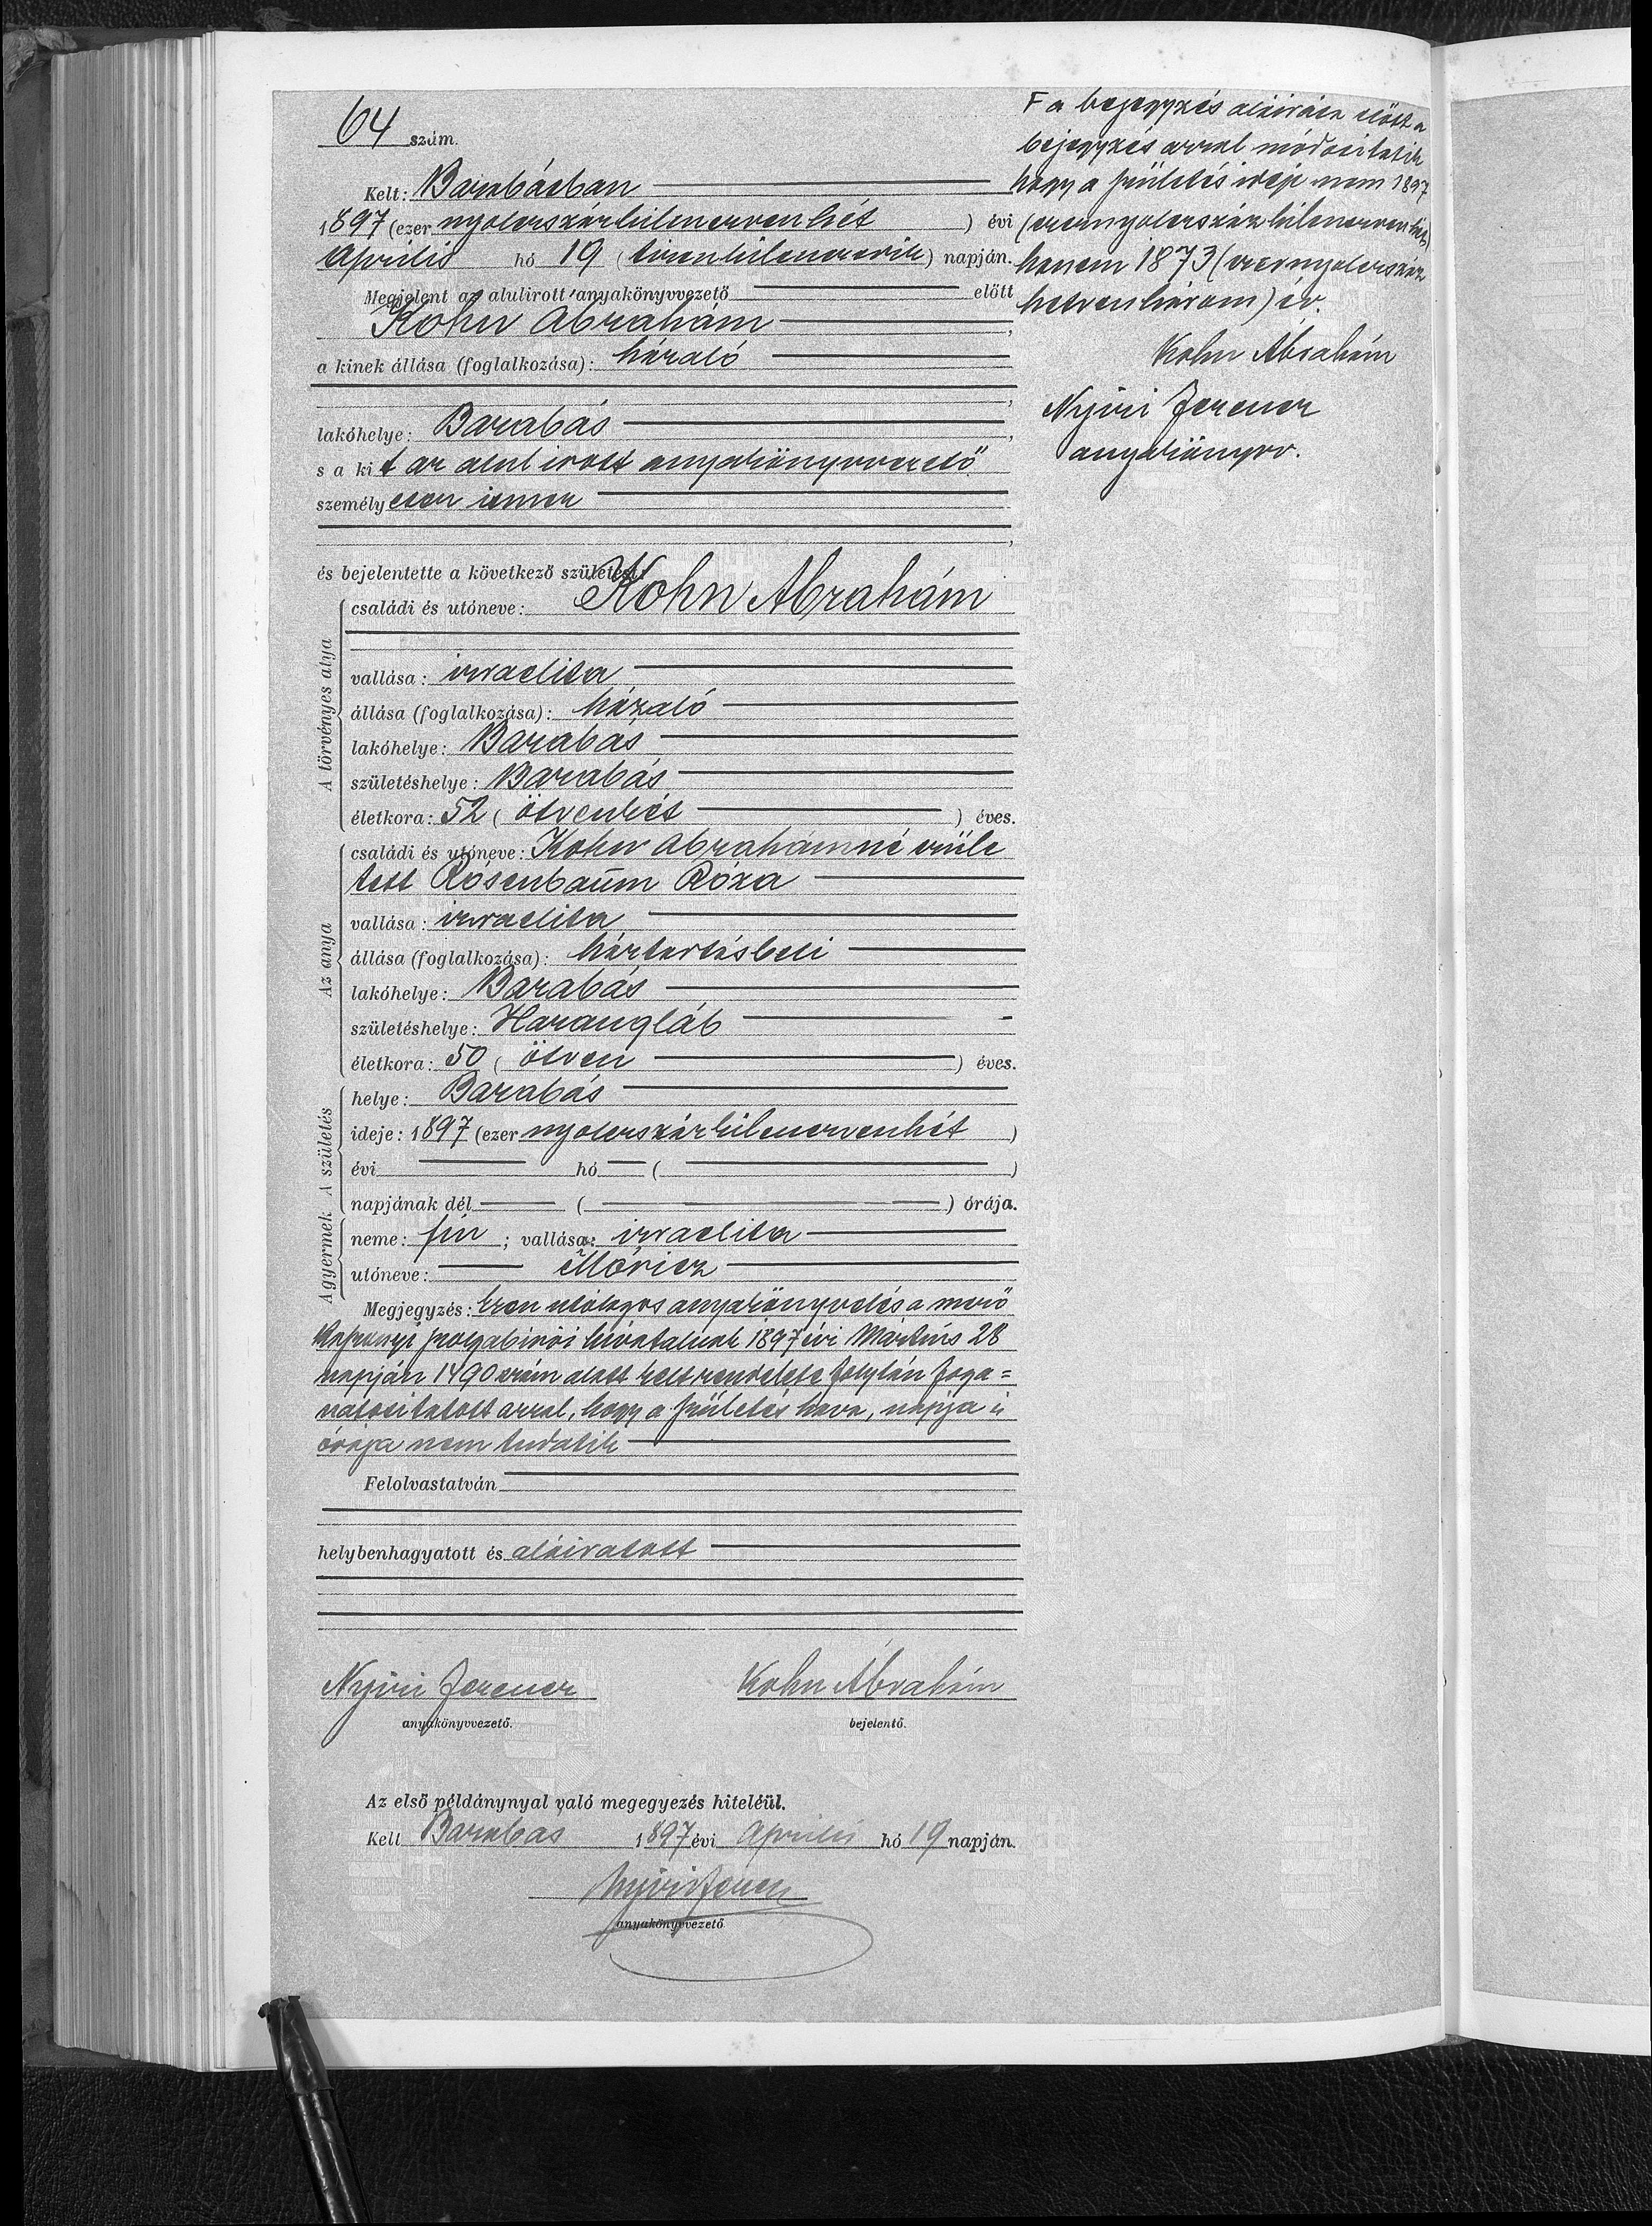 64 szám.
Kelt: Barabásban
1897 (ezer nyolczszázkilenczvenhét) évi
Április hó 19 (tizenkilenczedik) napján.
Megjelent az alulirott anyakönyvvezető előtt
Kohn Abrahám,
a kinek állása (foglalkozása): házaló
,
lakóhelye: Barabás,
s a kit az alul irott anyakönyvvezető
személyesen ismer
,
és bejelentette a következő születést:
A törvényes atya
családi és utóneve: Kohn Abrahám
vallása: izraelita
állása (foglalkozása): házaló
lakóhelye: Barabás
születéshelye: Barabás
életkora: 52 (ötvenkét) éves.
Az anya
családi és utóneve: Kohn Abrahámné szüle
tett Rósenbaum Róza
vallása: izraelita
állása (foglalkozása): háztartásbeli
lakóhelye: Barabás
születéshelye: Harangláb
életkora: 50 (ötven) éves.
A születés
helye: Barabás
ideje: 1897 (ezer nyolczszázkilenczvenhét)
évi hó ( )
napjának dél ( ) órája.
A gyermek
neme: fiú; vallása: izraelita
utóneve: Móricz
Megjegyzés: Ezen utólagos anyakönyvelés a mező
kaszonyi szolgabirói hivatalnak 1897 évi Mártius 28
napján 1490 szám alatt kelt rendelete folytán foga=
natosittatott azzal, hogy a születés hava, napja és
órája nem tudatik
Felolvastatván
helybenhagyatott és aláiratott
Nyiri Ferencz
anyakönyvvezető.
Kohn Ábrahám
bejelentő.
Az első példánynyal való megegyezés hiteléül.
Kelt Barabás 1897 évi Április hó 19 napján.
Nyiri Ferencz
anyakönyvvezető
F a bejegyzés aláirása előtt a
bejegyzés azzal módosittatik
hogy a születés ideje nem 1897
(ezernyolczszázkilenczvenhét)
hanem 1873 (ezernyolczszáz
hetvenhárom) év.
Kohn Ábrahám
Nyiri Ferencz
anyakönyvv.